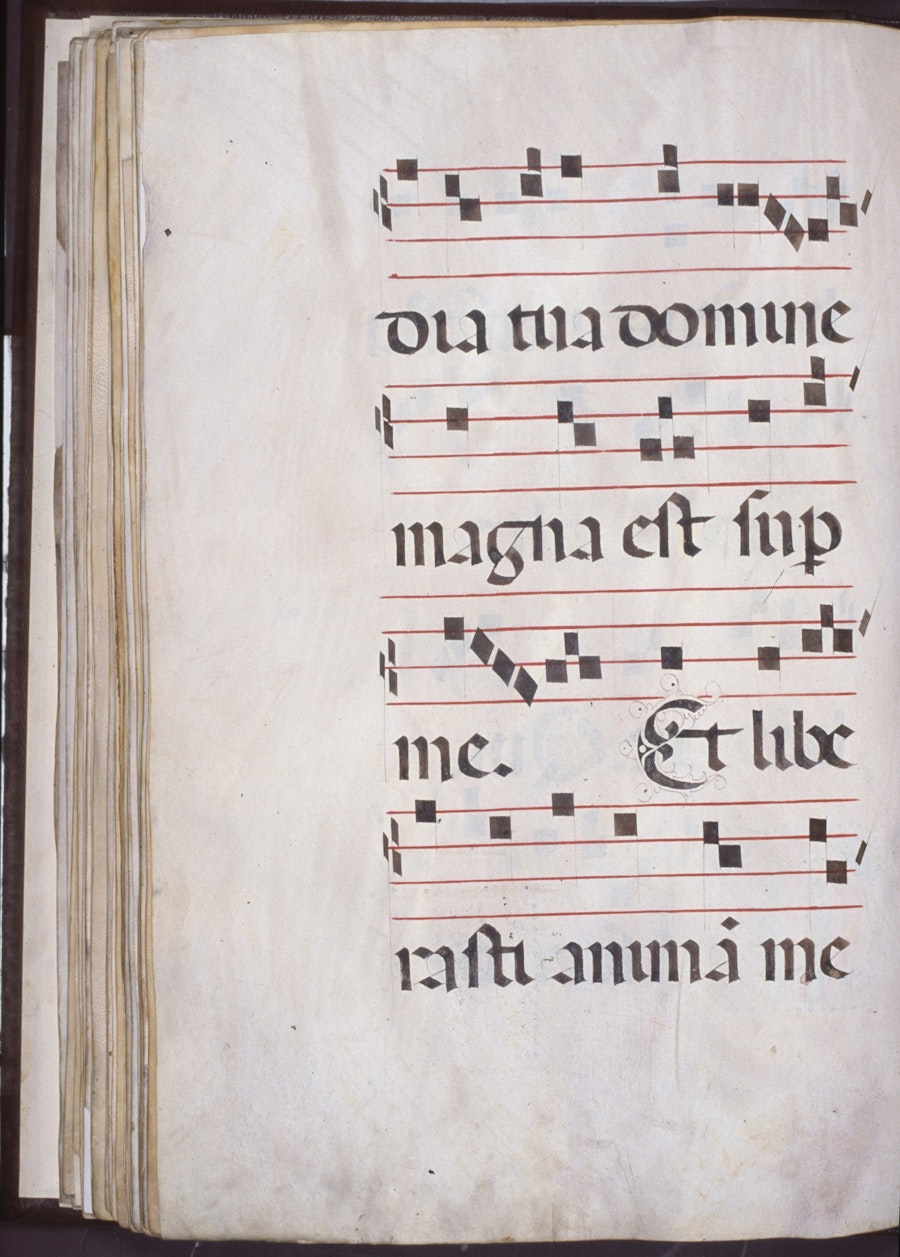 dia tua domine
magna est sup
me. Et libe
rasti animā me